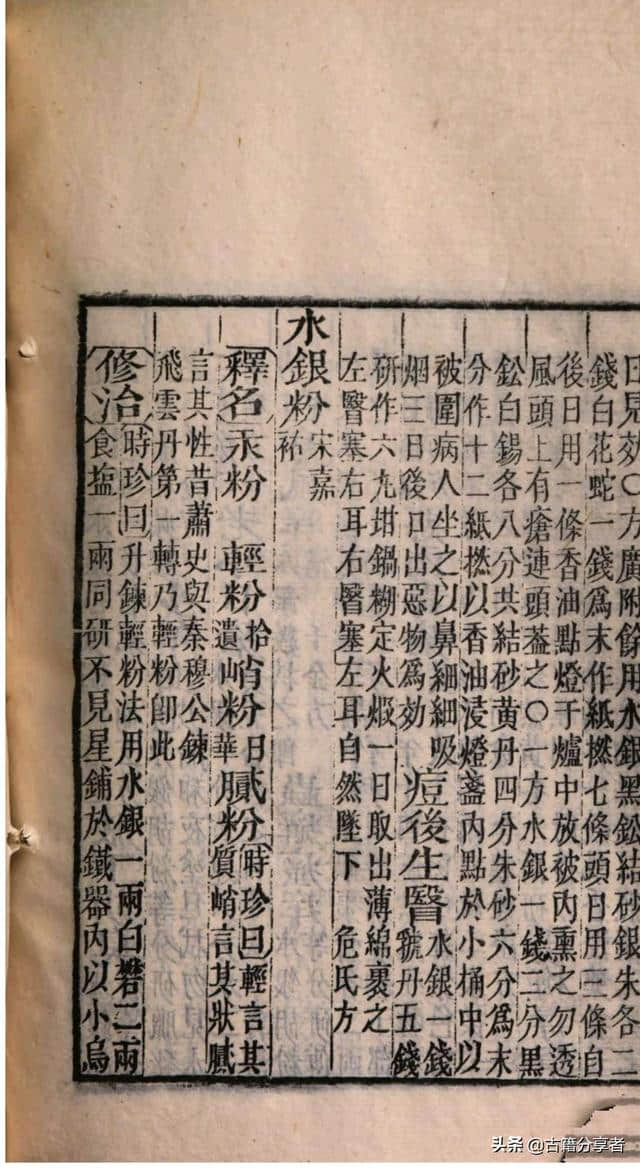 日見効〇方廣附餘用水銀黑鈆結砂銀朱各二
錢白花蛇一錢爲末作紙撚七條頭日用三條自
後日用一條香油點燈于爐中放被內熏之勿透
風頭上有瘡連頭葢之〇一方水銀一錢二分黑
鈆白錫各八分共結砂黃丹四分朱砂六分爲末
分作十二紙撚以香油浸燈盞內點於小桶中以
被圍病人坐之以鼻細細吸
烟三日後口出惡物爲効
痘後生瞖
水銀一錢
虢丹五錢
研作六丸坩鍋糊定火煅一日取出薄綿裹之
左瞖塞右耳右瞖塞左耳自然墜下 危氏方
水銀粉 宋嘉祐
釋名 汞粉 輕粉 拾遺 峭粉 日華 膩粉
時珍曰輕言其
質峭言其狀膩
言其性昔蕭史與秦穆公鍊
飛雲丹第一轉乃輕粉卽此
修治
時珍曰升鍊輕粉法用水銀一兩白礬二兩
食塩一兩同研不見星鋪於鐵器內以小烏
头条 @古籍分享者